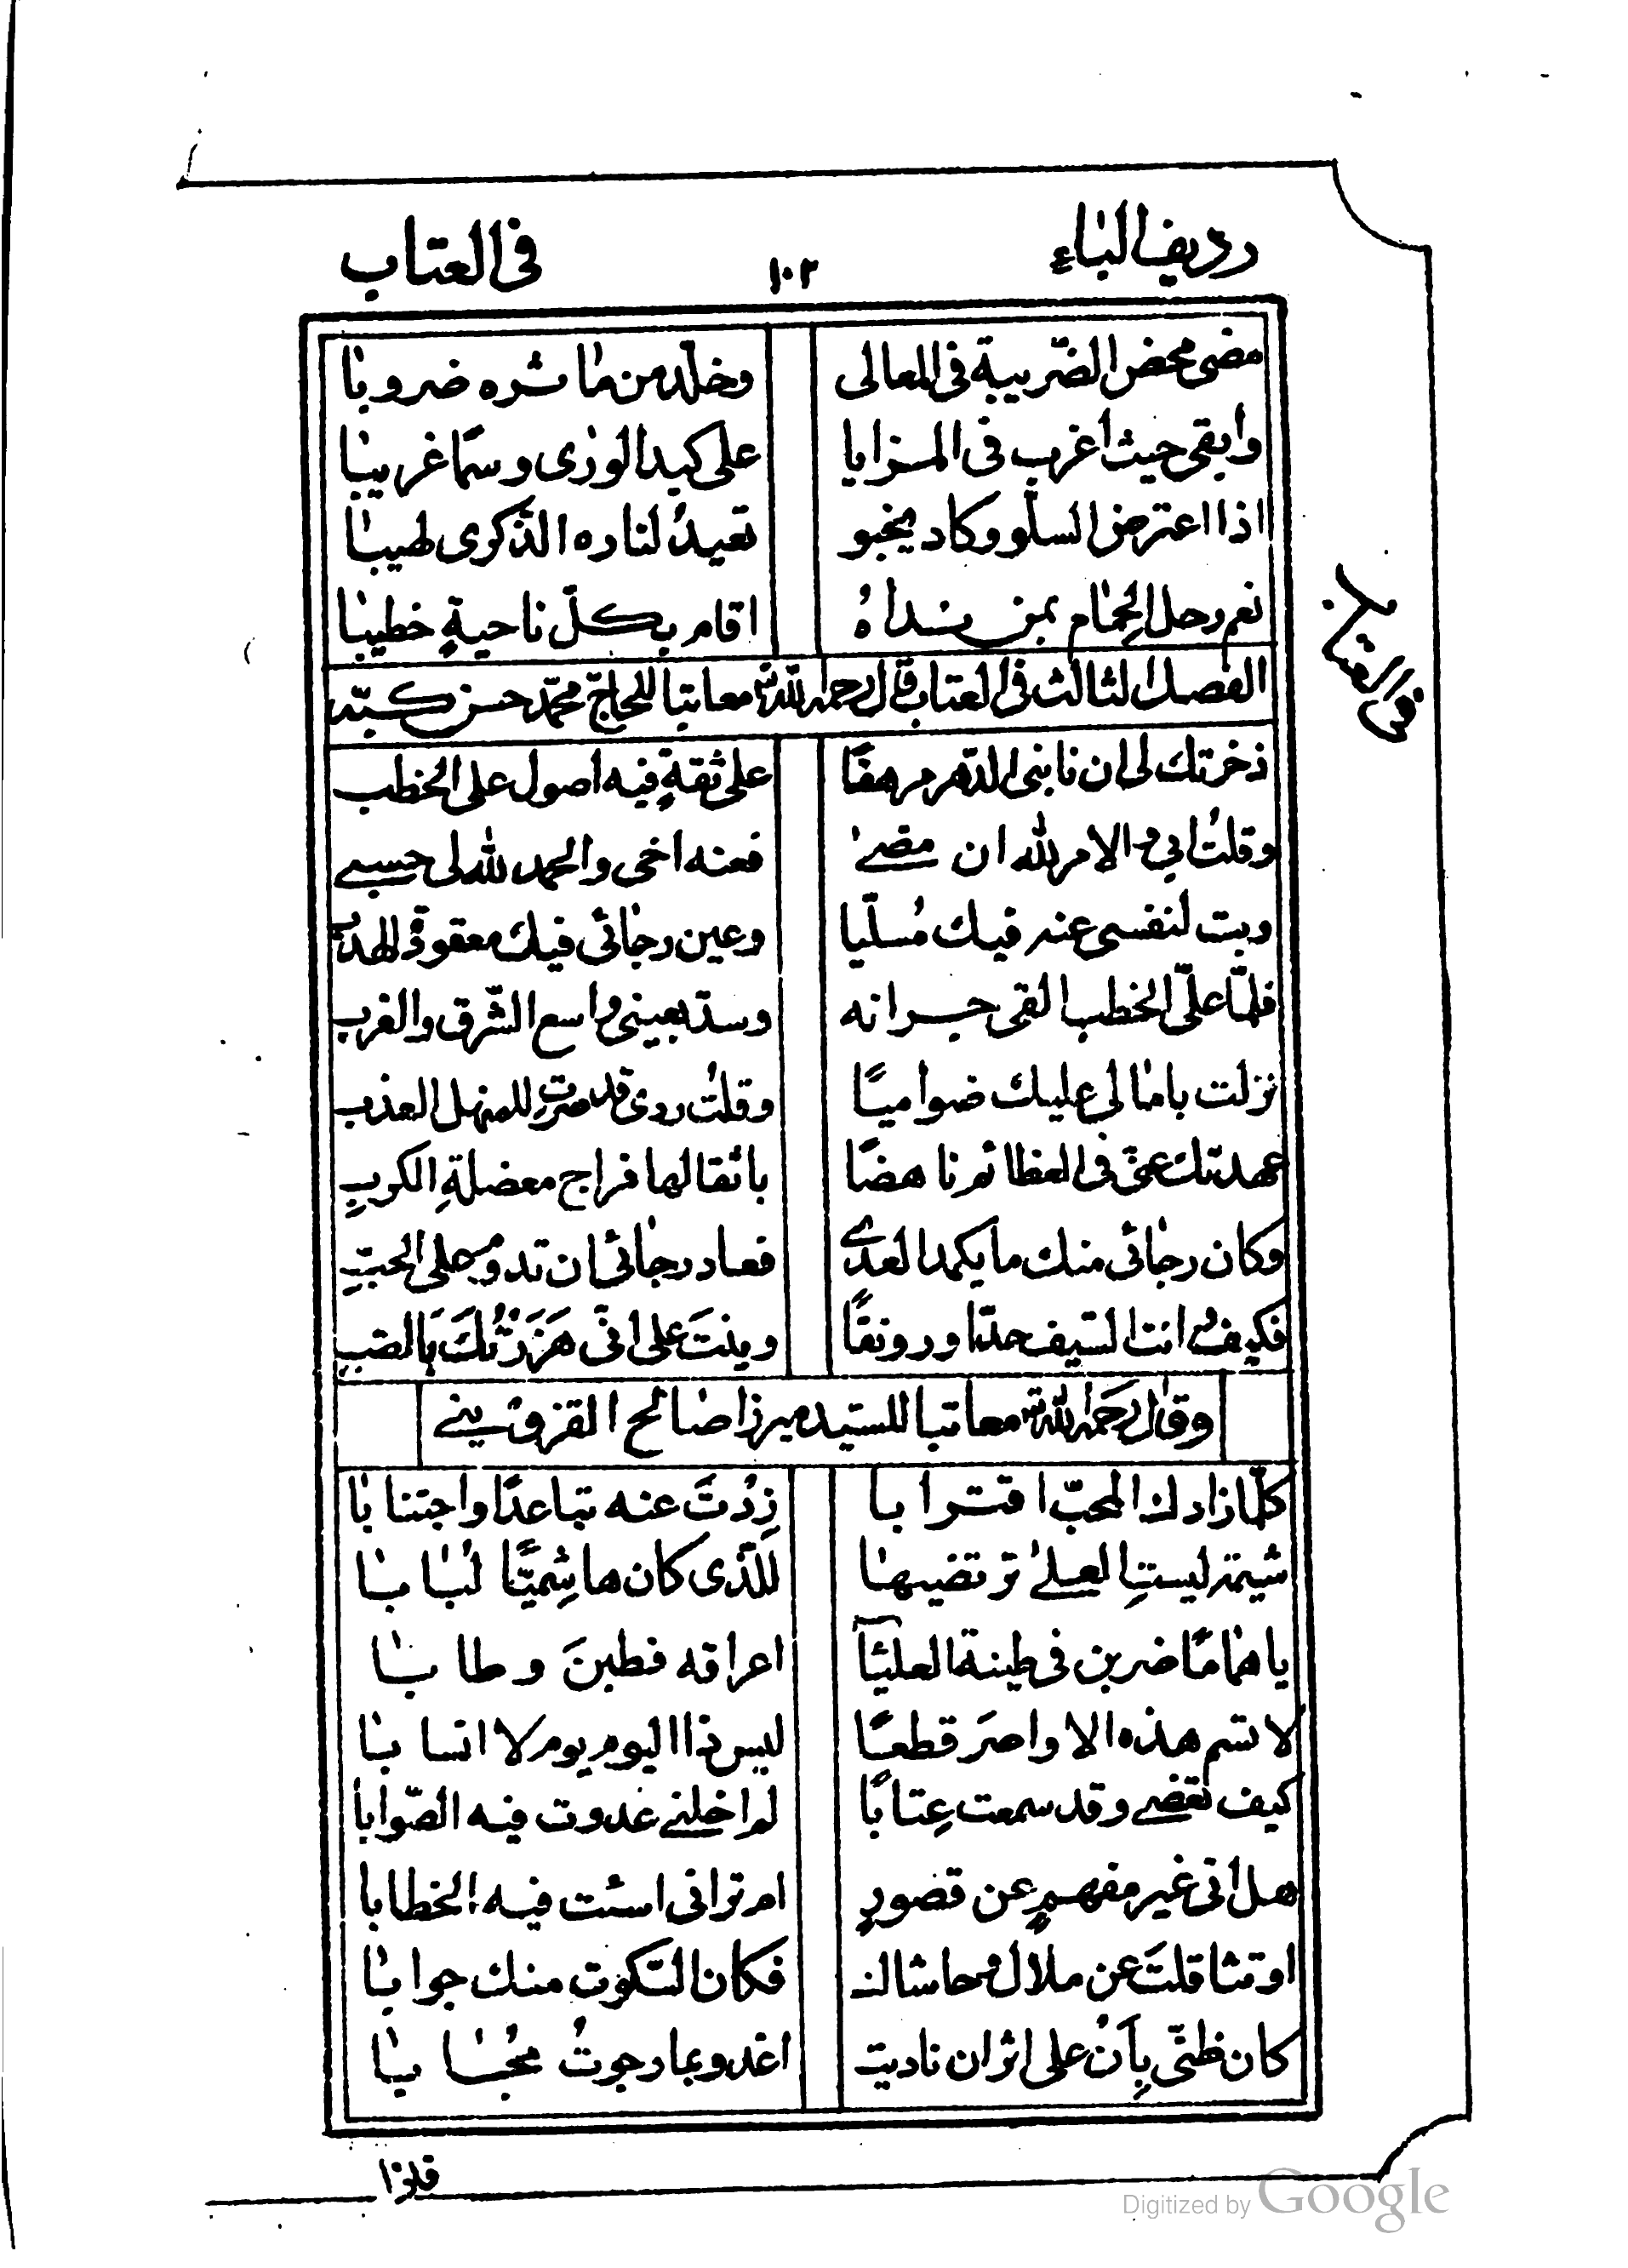 رديف الباء ١٠٢ فى العتاب
مضى محض الضّريبة فى المعالى وخلّد من ماثره ضروبا
وابقى حيث اغرب فى المزايا على كبد الورى وسمًا غريبا
اذا اعترض السلّو وكاد يخبو تعيدُ لناره الذّكرى لهيبا
نعم رحل الحِمام بمن نداهُ اقام بكلّ ناحيةٍ خطيبا
فى العتاب
الفصل الثالث فى العتاب قال رحمه الله تع معاتبا للحاجّ محمّد حسن كبّه
ذخرتك لى ان نابنى الدّهر مرهفًا على ثقةٍ فيه اصول على الخطب
وقلتُ ابى والامر لله ان مضىٰ فعنه اخى والحمد لله لى حسبى
وبت لنفسى عنه فيك مُسلّيا وعين رجائى فيك معقودة الهدب
فلمّا علىّ الخطب القى جرانه وسدّ بعينى واسع الشّرق والغرب
نزلت بامالى عليك ضواميًا وقلتُ ردى قد صرتِ للمنهل العذب
عهدتك عنّى فى العظائم ناهضًا باثقالها فراج معضلةِ الكربِ
وكان رجائى منك ما يكمد العدى فعاد رجائى ان تدوم على الحبّ
فكيف وانت السّيف حدّا ورونقًا وينتَ على انّى هَزَزْتُكَ بالضّب
وقال رحمه الله تع معاتبا للسيّد ميرزا صالح القزوينى
كلّما زادك المحبّ اقترابا زِدْتَ عنه تباعدًا واجتنابا
شيمة ليستِ العلىٰ ترتضيها للّذى كان هاشِميًّا لُبابا
يا همامًا ضربن فى طينة العليآ اعراقه فطبنَ وطابا
لا تسم هذه الاواصرَ قطعًا ليس ذا اليوم يوم لا انسابا
كيف تغضى وقد سمعت عِتابًا لم اخلنى عدوت فيه الصّوابا
هل انى غير مفهمٍ عن قصورٍ ام ترانى اسئت فيه الخطابا
او تثاقلتَ عن ملال وحاشاك فكان السّكوت منك جوابا
كان ظنّى بِأَن على اثر ان ناديت اغدو بما رجوتُ مُجابا
فلذا
Digitized by Google